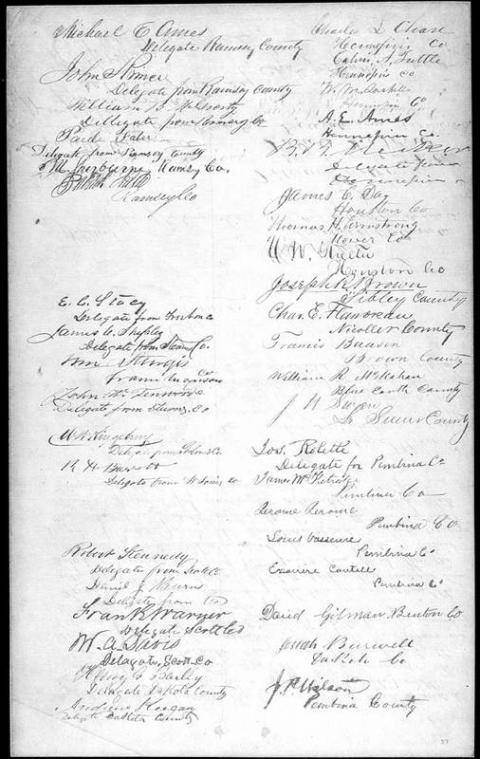 Michael E Ames
Delegate Ramsey County
Delegate from Ramsey County
William
Delegate from Ramsey Co
Delegate from Ramsey County
Ramsey Co.
Ramsey Co
E. C. Stacy
Delegate from
James C. Shepley
Delegate from Co.
Wm Sturgis
from
John
Delegate from Stearns Co
W. W. Kingsbury
Delegate from
R. H. Barrett
Delegate from St Louis Co
Robert Kennedy
Delegate from Scott Co
Daniel J. Burns
Delegate from
Frank Warner
Delegate Scott Co
W. A. Davis
Delegate, Scott Co
Henry G. Bailly
Delegate Dakota County
Andrew Keegan
Delegate Dakota County
Charles L Chase
Hennepin Co
Calvin A. Tuttle
Hennepin Co
Hennepin Co
A. E. Ames
Hennepin Co.
B. B. Meeker
Delegate from
Hennepin
James C. Day
Houston Co
Thomas H. Armstrong
Mower Co
O. W. Streeter
Houston Co
Joseph R Brown
Sibley County
Chas. E. Flandreau
Nicollet County
Francis Baasen
Brown County
William B. McMahan
Blue Earth County
J. H. Swan
Le Sueur County
Jos. Rolette
Delegate for Pembina Co
James McFetridge
Pembina Co
Jerome
Pembina Co
Louis Vasseur
Pembina Co
Pembina Co
David Gilman Benton Co
Josiah Burwell
Co
J. P. Wilson
Pembina County